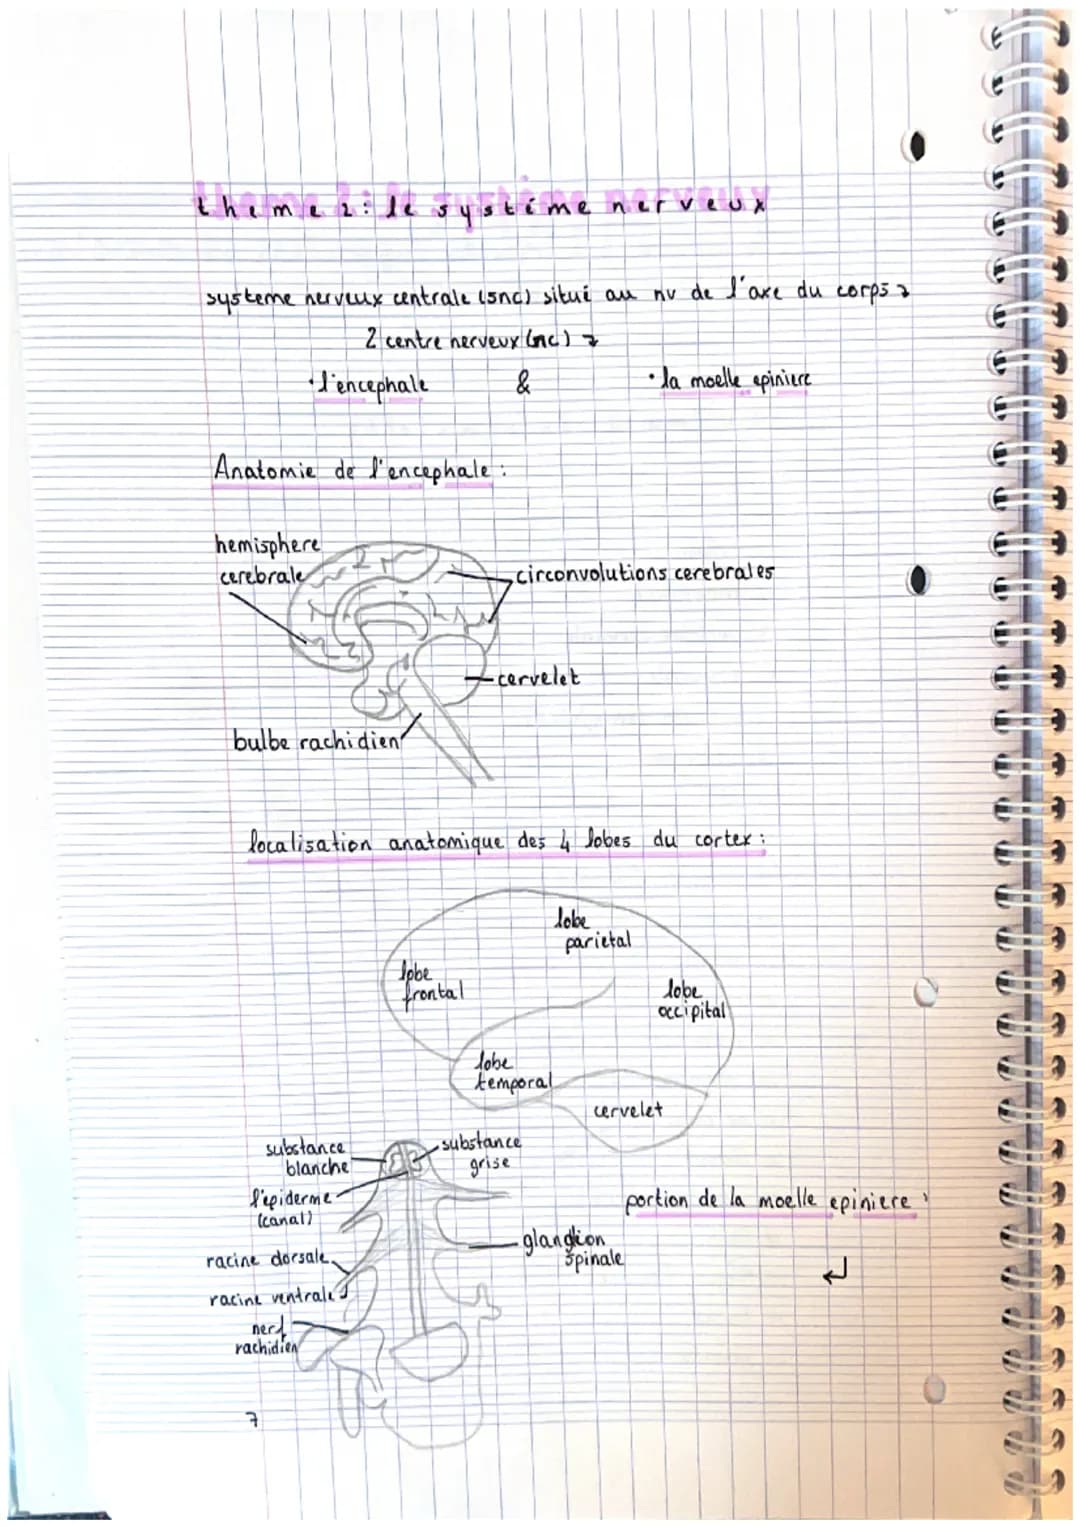 theme 2: le système nerveux
systeme nerveux centrale (snc) situé au nv de l'axe du corps →
2 centre nerveux (nc) →
· l'encephale & · la moelle epiniere
Anatomie de l'encephale :
hemisphere
cerebrale
circonvolutions cerebrales
cervelet
bulbe rachidien
localisation anatomique des 4 lobes du cortex :
lobe
parietal
lobe
frontal
lobe
occipital
lobe
temporal
cervelet
substance
blanche
substance
grise
l'epiderme
(canal)
portion de la moelle epiniere :
glanglion
spinale
racine dorsale
racine ventrale
nerf
rachidien
7